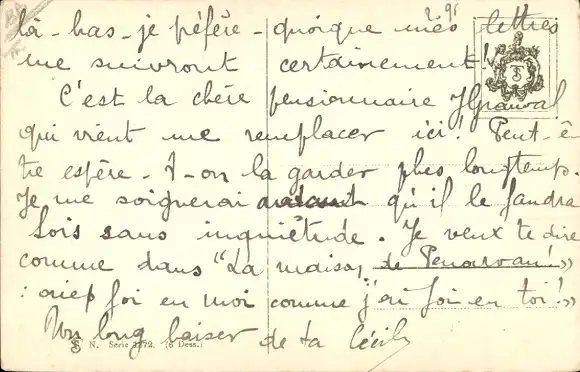 là-bas-je péfère-quoique mes lettres
me suivront certainement!
C'est la chère pensionnaire
qui vient me remplacer ici! Peut-ê-
tre espère-t-on la garder plus longtemps.
Je me soignerai autant qu'il le faudra
Sois sans inquiétude. Je veux te dire
comme dans "La maison de Penarvan!"
: foi en moi comme j'ai foi en toi!"
Un long baiser de ta Cécile
TS N. Serie 1272. (6 Dess.)